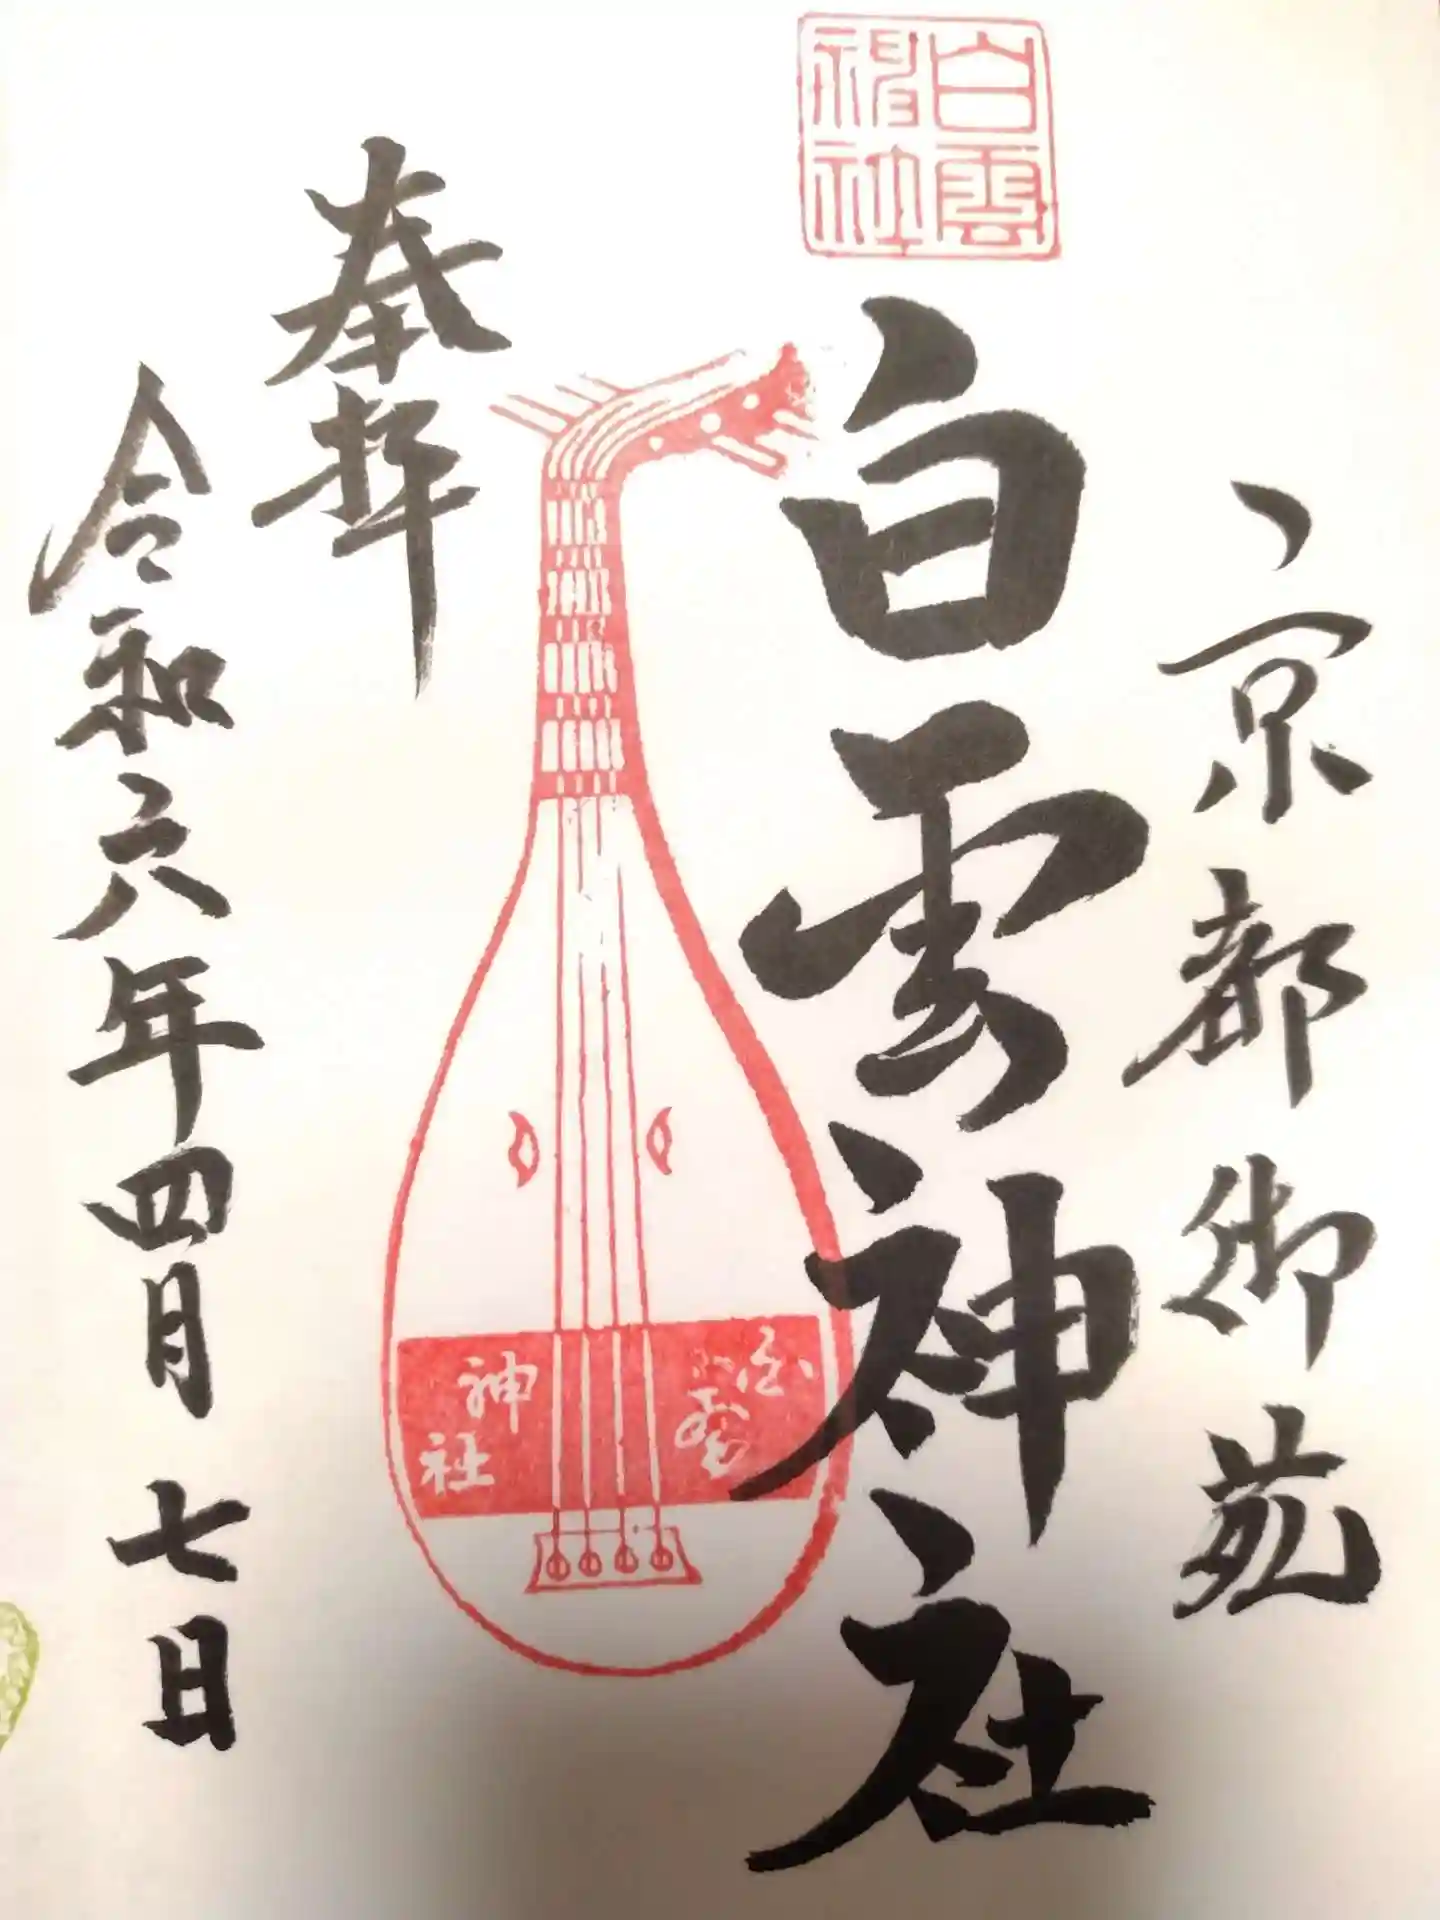 白雲
神社
京都御苑
白雲神社
白雲
神社
奉拝
令和六年四月七日